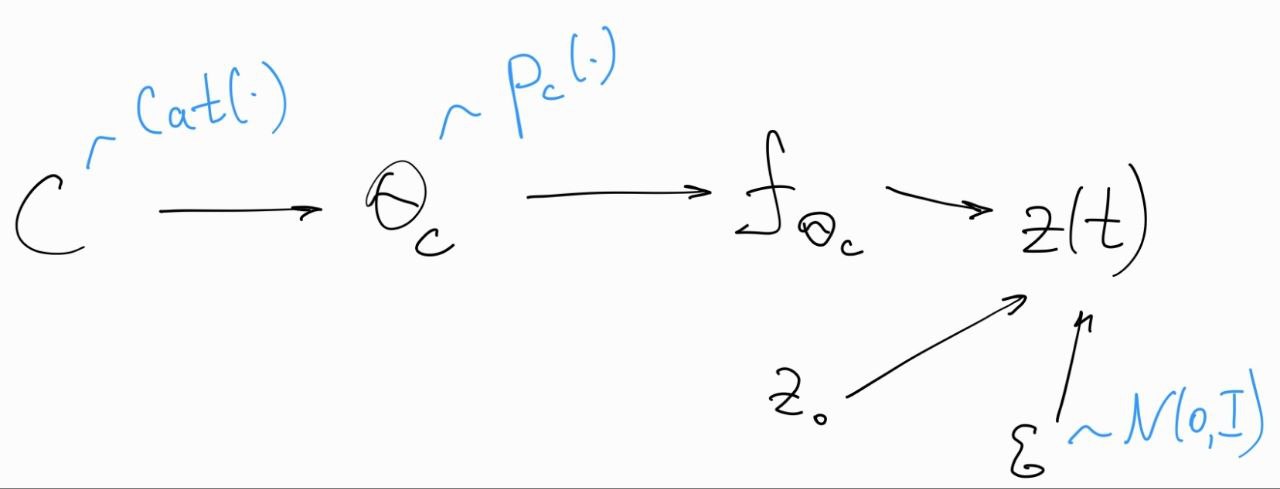 C ~ Cat(·) → θ_c ~ p_c(·) → f_θ_c → z(t)
z_0
ε ~ N(0,I)